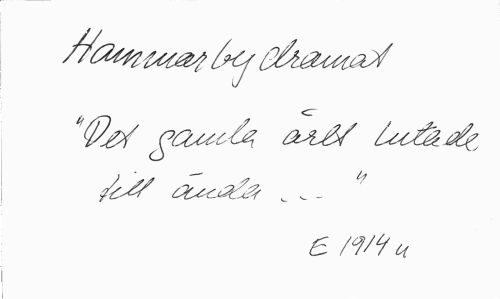 Hammarbydramat
"Det gamla året lutade
till ända ... "
E 1914 u